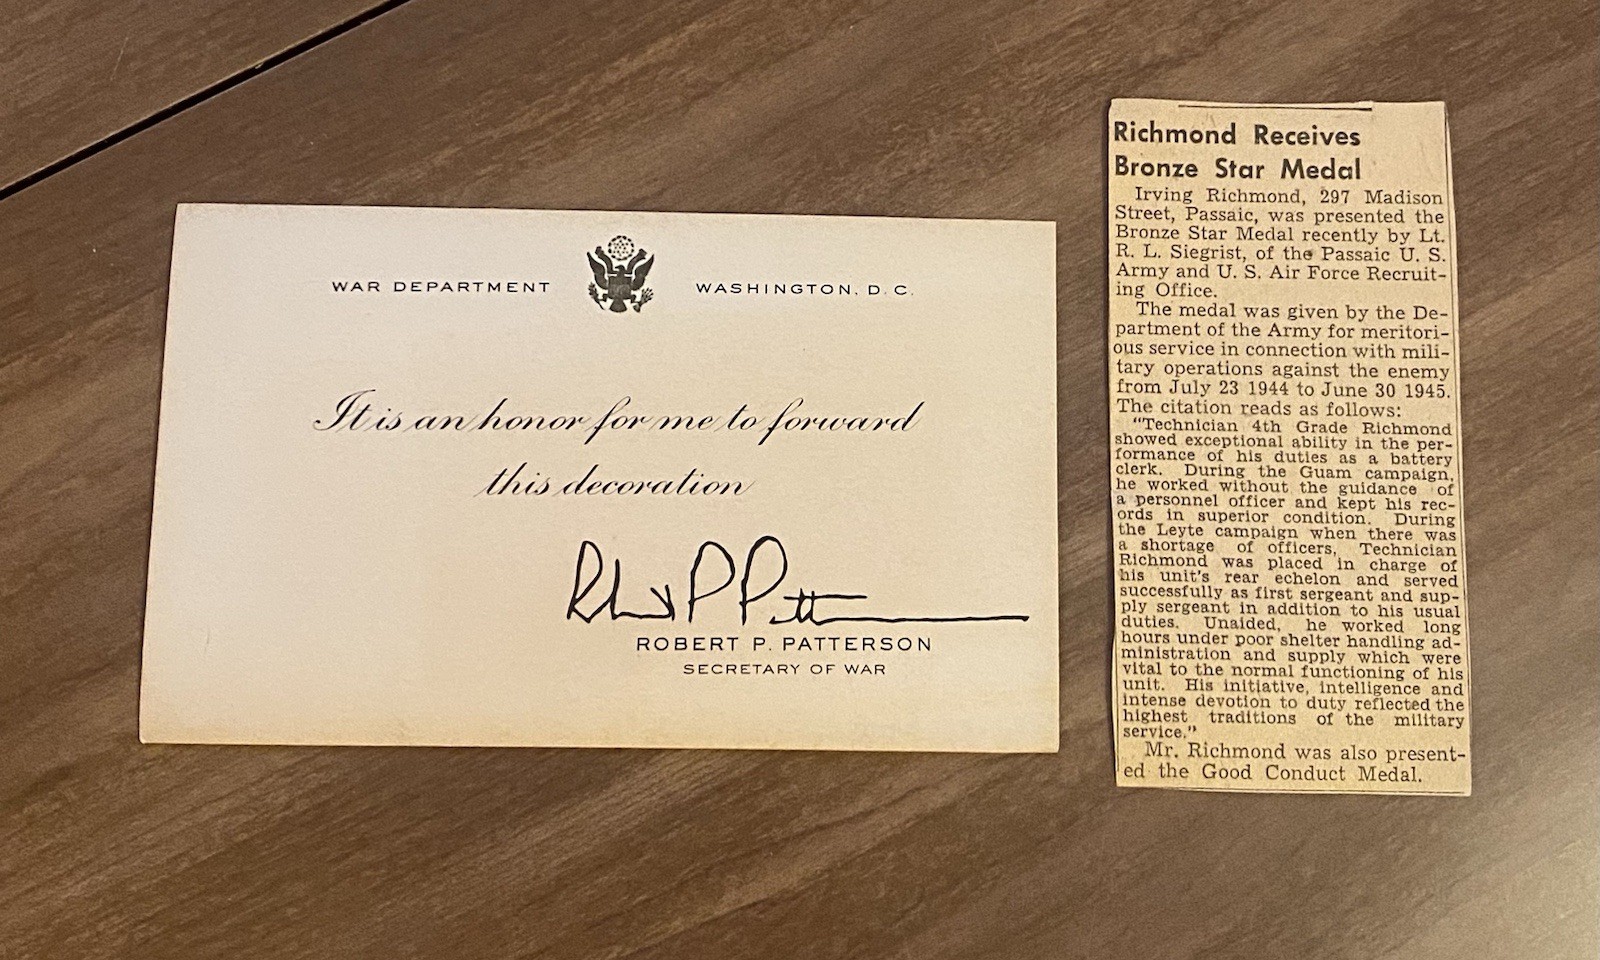 WAR DEPARTMENT WASHINGTON, D.C.
It is an honor for me to forward
this decoration
Robert P Patterson
ROBERT P. PATTERSON
SECRETARY OF WAR
Richmond Receives
Bronze Star Medal
Irving Richmond, 297 Madison
Street, Passaic, was presented the
Bronze Star Medal recently by Lt.
R. L. Siegrist, of the Passaic U. S.
Army and U. S. Air Force Recruit-
ing Office.
The medal was given by the De-
partment of the Army for meritori-
ous service in connection with mili-
tary operations against the enemy
from July 23 1944 to June 30 1945.
The citation reads as follows:
"Technician 4th Grade Richmond
showed exceptional ability in the per-
formance of his duties as a battery
clerk. During the Guam campaign,
he worked without the guidance of
a personnel officer and kept his rec-
ords in superior condition. During
the Leyte campaign when there was
a shortage of officers, Technician
Richmond was placed in charge of
his unit's rear echelon and served
successfully as first sergeant and sup-
ply sergeant in addition to his usual
duties. Unaided, he worked long
hours under poor shelter handling ad-
ministration and supply which were
vital to the normal functioning of his
unit. His initiative, intelligence and
intense devotion to duty reflected the
highest traditions of the military
service."
Mr. Richmond was also present-
ed the Good Conduct Medal.